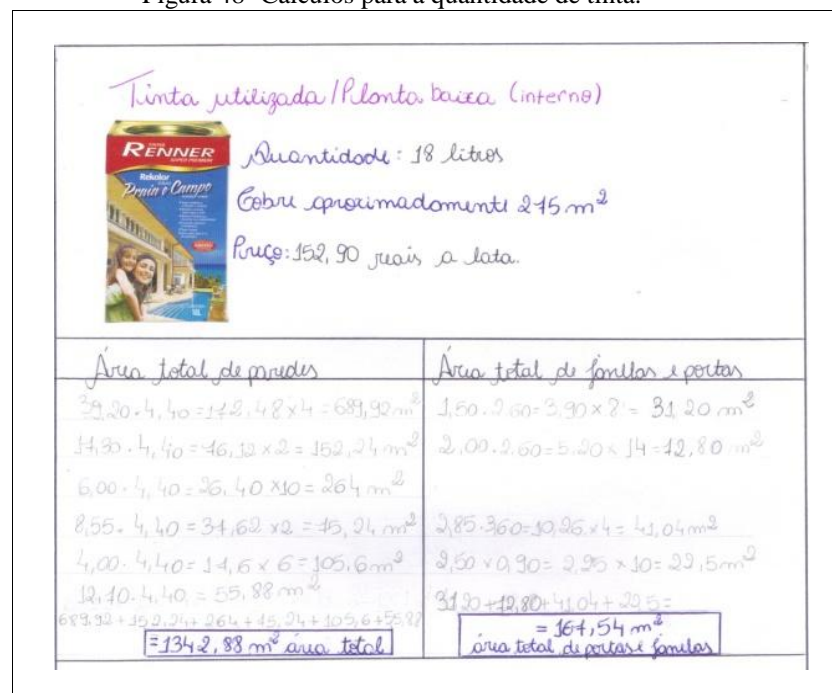 Figura Cálculos para a quantidade de tinta.
Tinta utilizada / Planta baixa (interno)
RENNER
SUPER PREMIUM
Rekolor
Praia e Campo
18L
Quantidade: 18 litros
Cobre aproximadamente 275 m²
Preço: 152,90 reais a lata.
Área total de paredes
39,20 . 4,40 = 172,48 x 4 = 689,92 m²
17,30 . 4,40 = 76,12 x 2 = 152,24 m²
6,00 . 4,40 = 26,40 x10 = 264 m²
8,55 . 4,40 = 37,62 x2 = 75,24 m²
4,00 . 4,40 = 17,6 x 6 = 105,6 m²
12,70 . 4,40, = 55,88 m²
689,92 + 152,24 + 264 + 75,24 + 105,6 + 55,88
= 1342,88 m² área total
Área total de janelas e portas
1,50 . 2,60 = 3,90 x 8 = 31,20 m²
2,00 . 2,60 = 5,20 x 14 = 72,80 m²
2,85 . 3,60 = 10,26 x 4 = 41,04 m²
2,50 x 0,90 = 2,25 x 10 = 22,5 m²
31,20 + 72,80 + 41,04 + 22,5 =
= 167,54 m²
área total de portas e janelas